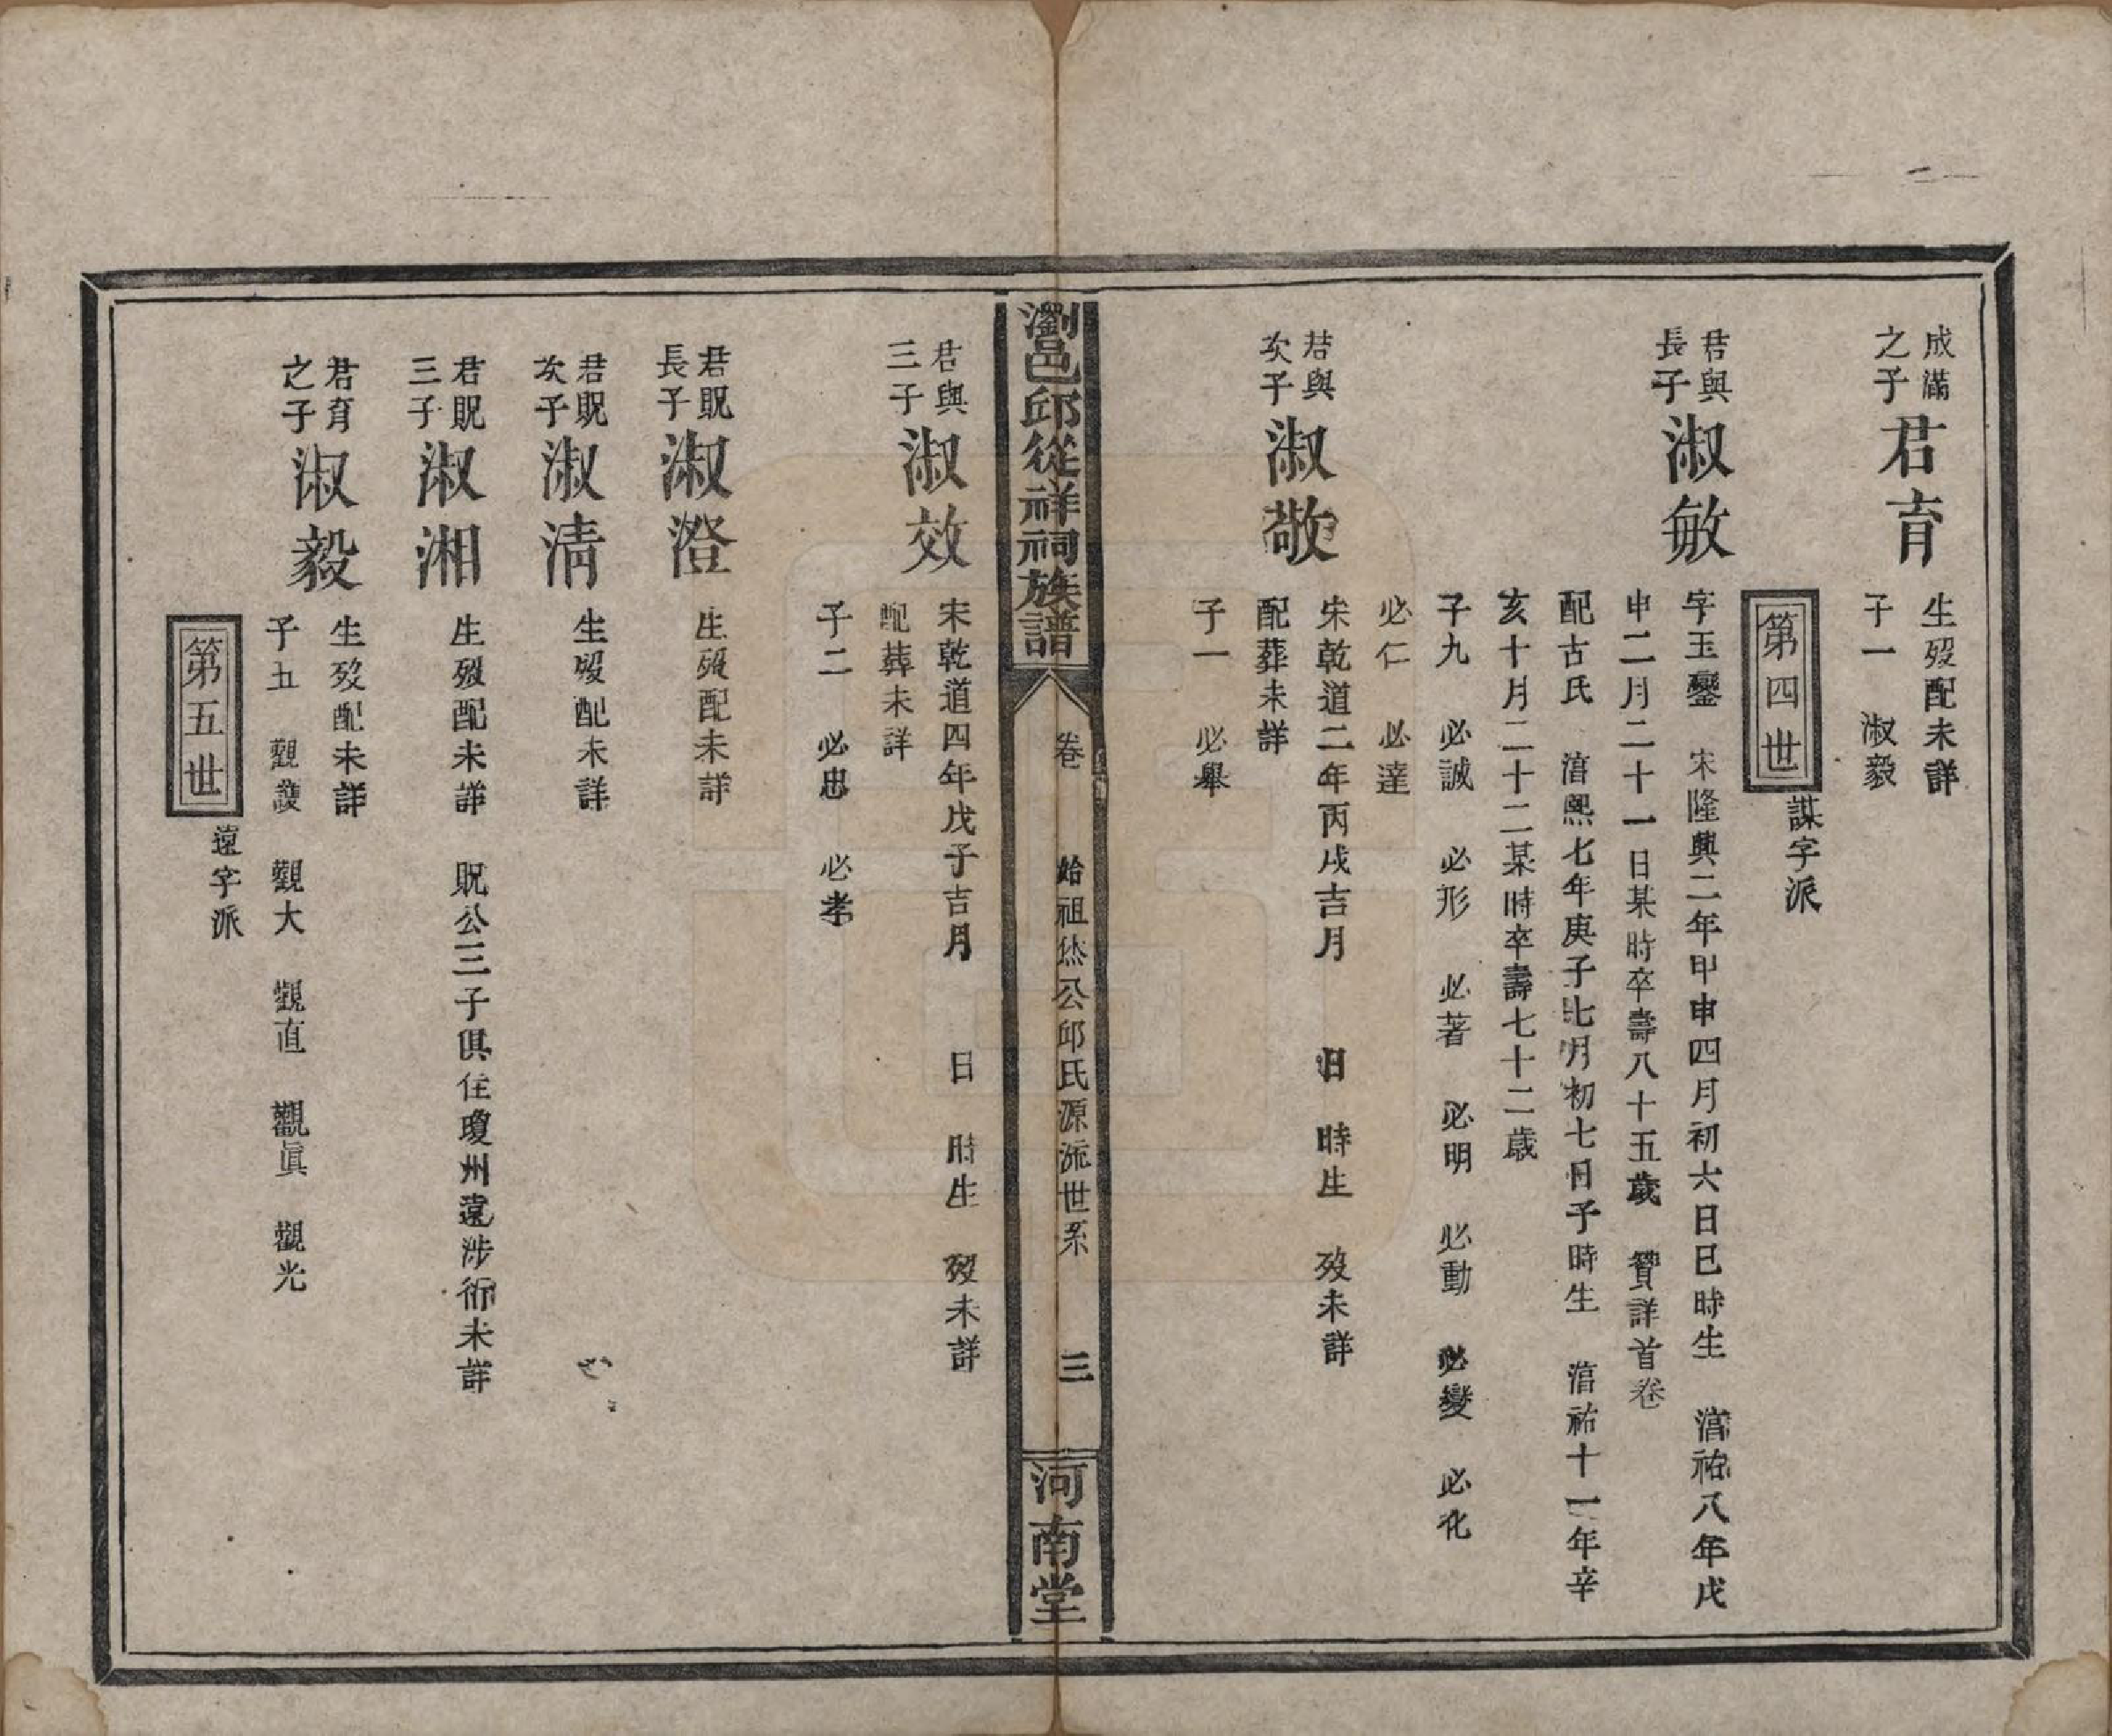 成滿
之子
君育
生歿配未詳
子一　淑毅
第四世
謀字派
君與
長子
淑敏
字玉鑾　宋隆興二年甲申四月初六日巳時生　淯祐八年戊
申二月二十一日某時卒壽八十五歲　贊詳首卷
配古氏　淯熙七年庚子七月初七日子時生　淯祐十一年辛
亥十月二十二某時卒壽七十二歲
子九　必誠　必形　必著　必明　必動　必變　必化
必仁　必達
君與
次子
淑敬
宋乾道二年丙戌吉月　日　時生　歿未詳
配葬未詳
子一　必舉
瀏邑邱從祥祠族譜
卷　始祖烋公邱氏源流世系　三
河南堂
君與
三子
淑效
宋乾道四年戊子吉月　日　時生　歿未詳
配葬未詳
子二　必忠　必孝
君貺
長子
淑澄
生歿配未詳
君貺
次子
淑清
生歿配未詳
君貺
三子
淑湘
生歿配未詳　貺公三子俱住瓊州遠涉衍未詳
君育
之子
淑毅
生歿配未詳
子五　觀護　觀大　觀直　觀眞　觀光
第五世
遠字派